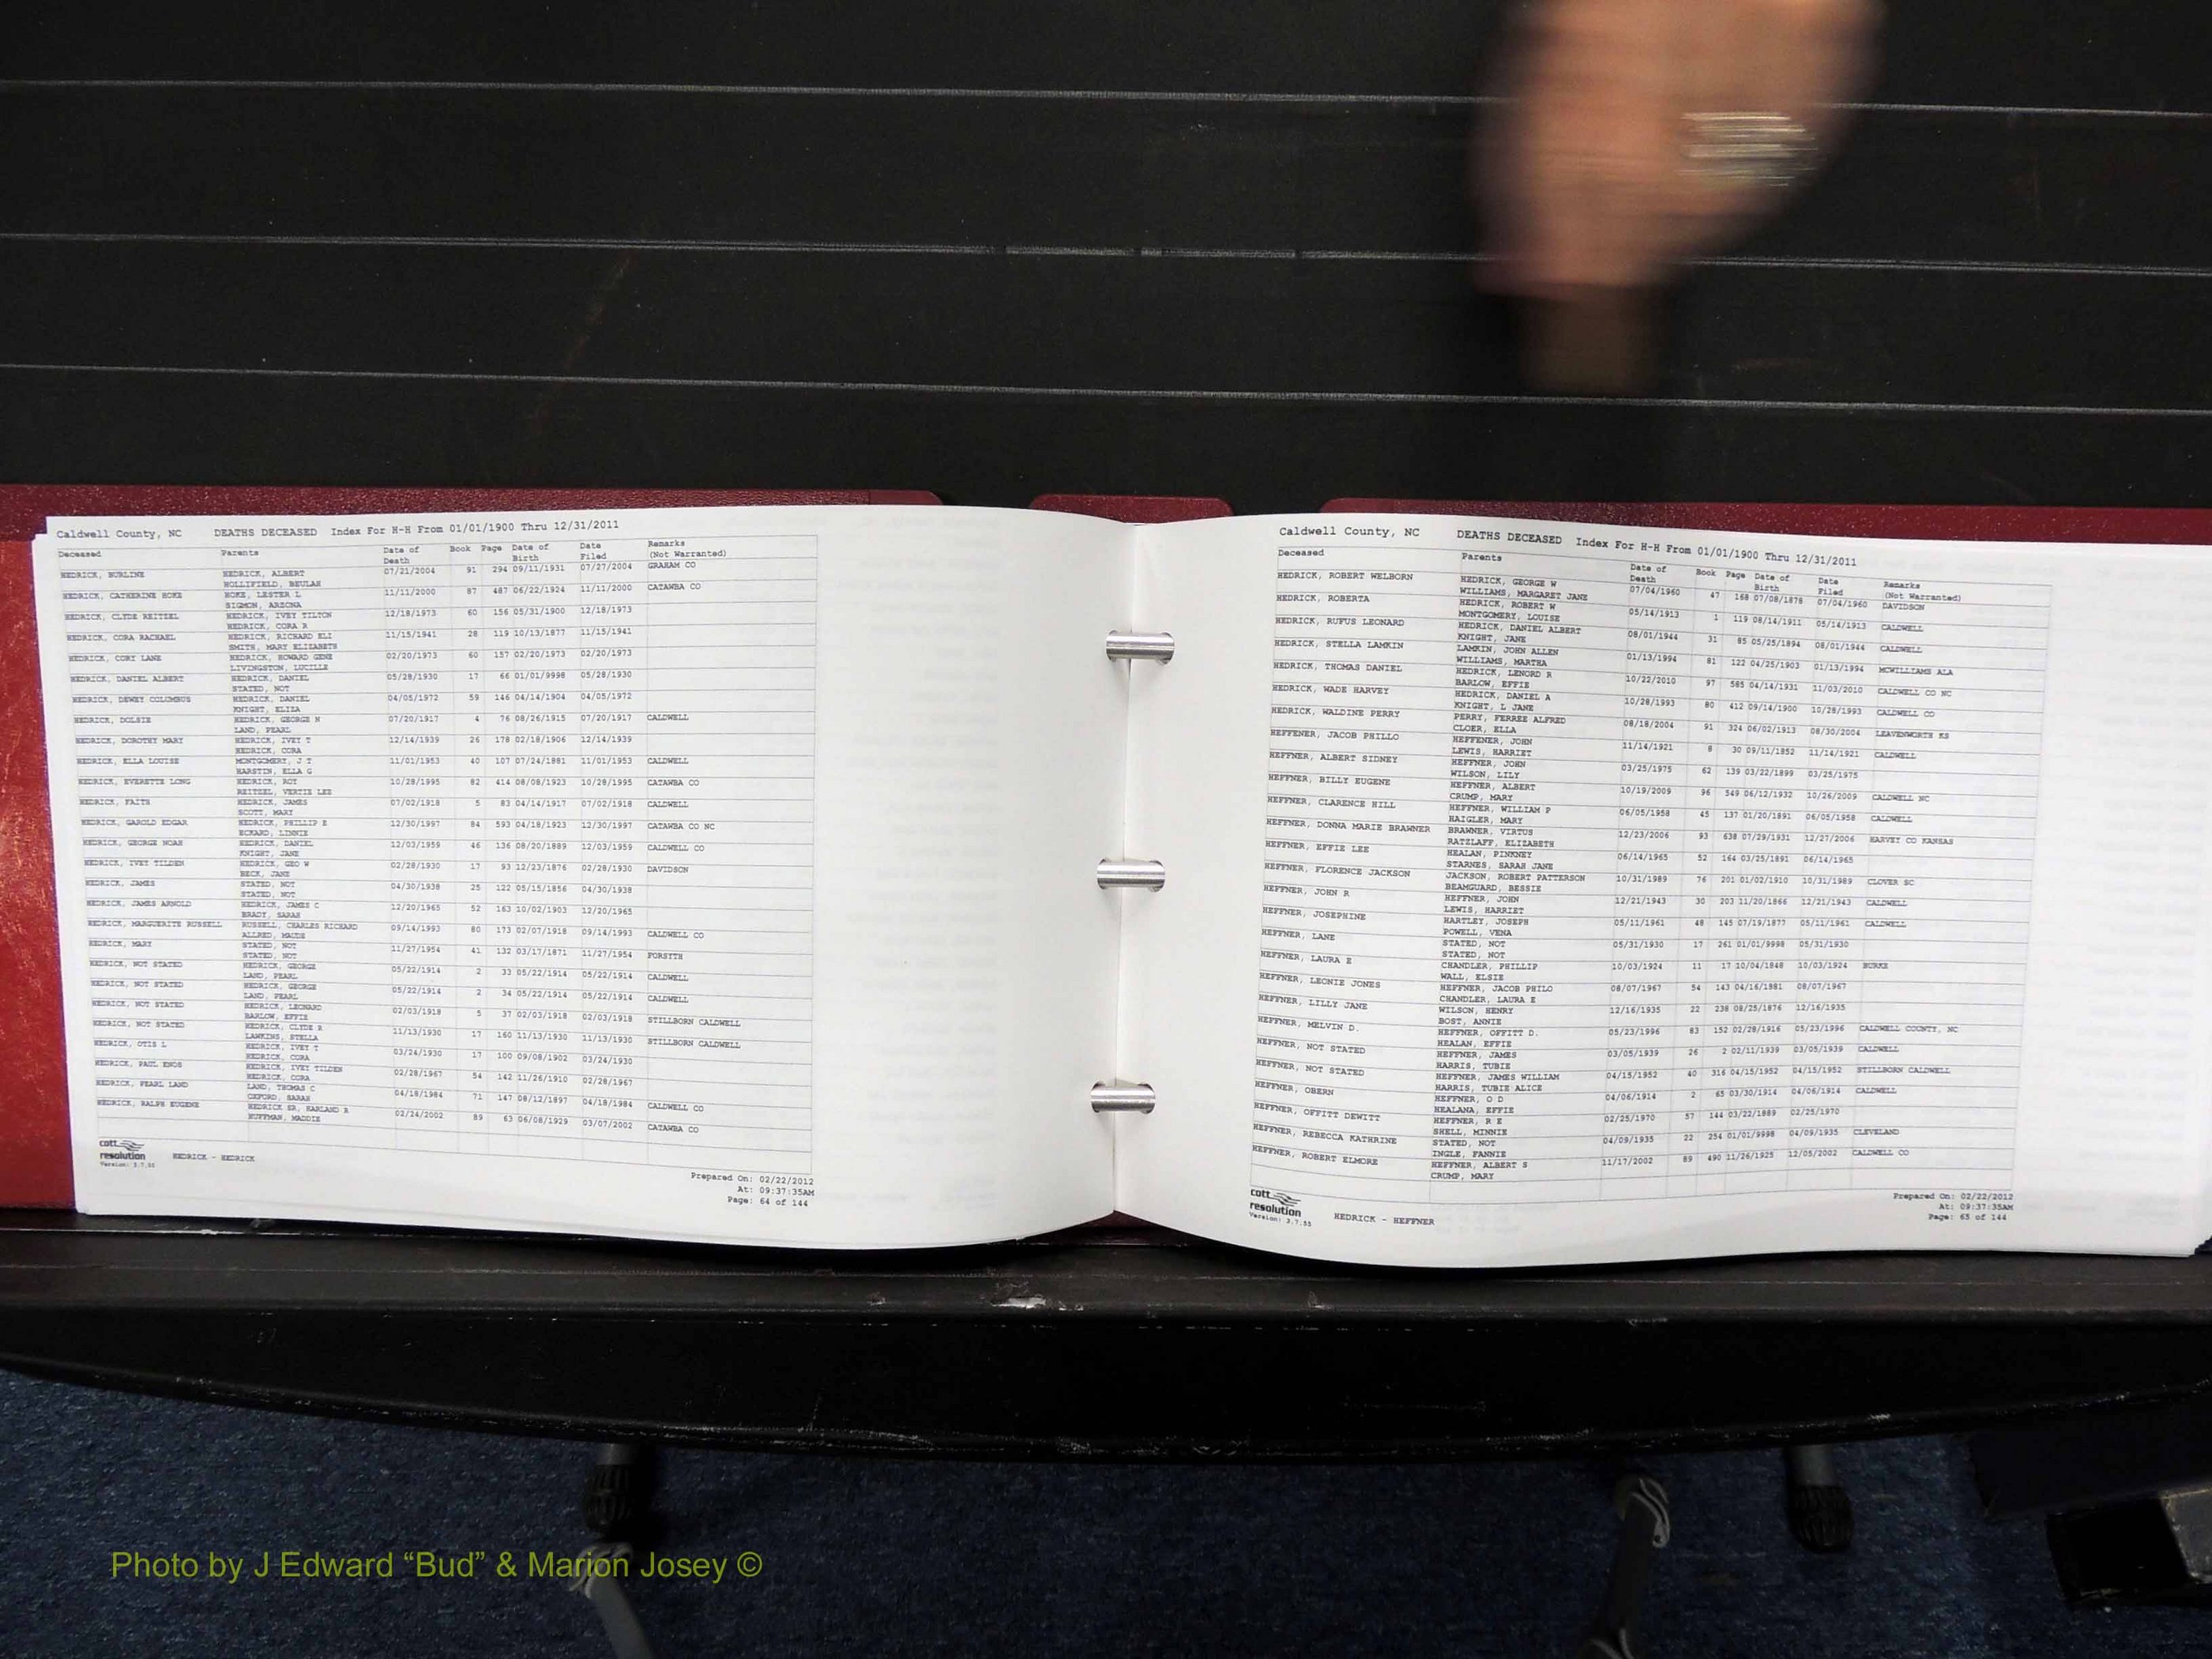 Caldwell County, NC DEATHS DECEASED Index For H-H From 01/01/1900 Thru 12/31/2011
Deceased Parents Date of Death Book Page Date of Birth Date Filed Remarks (Not Warranted)
HEDRICK, BURLINE HEDRICK, ALBERT 07/21/2004 91 294 09/11/1931 07/27/2004 GRAHAM CO
HOLLIFIELD, BEULAH
HEDRICK, CATHERINE HOKE HOKE, LESTER L 11/11/2000 87 487 06/22/1924 11/11/2000 CATAWBA CO
SIGMON, ARZONA
HEDRICK, CLYDE REITZEL HEDRICK, IVEY TILTON 12/18/1973 60 156 05/31/1900 12/18/1973
HEDRICK, CORA R
HEDRICK, CORA RACHAEL HEDRICK, RICHARD ELI 11/15/1941 28 119 10/13/1877 11/15/1941
SMITH, MARY ELIZABETH
HEDRICK, CORY LANE HEDRICK, HOWARD GENE 02/20/1973 60 157 02/20/1973 02/20/1973
LIVINGSTON, LUCILLE
HEDRICK, DANIEL ALBERT HEDRICK, DANIEL 05/28/1930 17 66 01/01/9998 05/28/1930
STATED, NOT
HEDRICK, DEWEY COLUMBUS HEDRICK, DANIEL 04/05/1972 59 146 04/14/1904 04/05/1972
KNIGHT, ELIZA
HEDRICK, DOLSIE HEDRICK, GEORGE N 07/20/1917 4 76 08/26/1915 07/20/1917 CALDWELL
LAND, PEARL
HEDRICK, DOROTHY MARY HEDRICK, IVEY T 12/14/1939 26 178 02/18/1906 12/14/1939
HEDRICK, CORA
HEDRICK, ELLA LOUISE MONTGOMERY, J T 11/01/1953 40 107 07/24/1881 11/01/1953 CALDWELL
HARSTIN, ELLA G
HEDRICK, EVERETTE LONG HEDRICK, ROY 10/28/1995 82 414 08/08/1923 10/28/1995 CATAWBA CO
REITZEL, VERTIE LEE
HEDRICK, FAITH HEDRICK, JAMES 07/02/1918 5 83 04/14/1917 07/02/1918 CALDWELL
SCOTT, MARY
HEDRICK, GAROLD EDGAR HEDRICK, PHILLIP E 12/30/1997 84 593 04/18/1923 12/30/1997 CATAWBA CO NC
ECKARD, LINNIE
HEDRICK, GEORGE NOAH HEDRICK, DANIEL 12/03/1959 46 136 08/20/1889 12/03/1959 CALDWELL CO
KNIGHT, JANE
HEDRICK, IVEY TILDEN HEDRICK, GEO W 02/28/1930 17 93 12/23/1876 02/28/1930 DAVIDSON
BECK, JANE
HEDRICK, JAMES STATED, NOT 04/30/1938 25 122 05/15/1856 04/30/1938
STATED, NOT
HEDRICK, JAMES ARNOLD HEDRICK, JAMES C 12/20/1965 52 163 10/02/1903 12/20/1965
BRADY, SARAH
HEDRICK, MARGUERITE RUSSELL RUSSELL, CHARLES RICHARD 09/14/1993 80 173 02/07/1918 09/14/1993 CALDWELL CO
ALLRED, MAUDE
HEDRICK, MARY STATED, NOT 11/27/1954 41 132 03/17/1871 11/27/1954 FORSYTH
STATED, NOT
HEDRICK, NOT STATED HEDRICK, GEORGE 05/22/1914 2 33 05/22/1914 05/22/1914 CALDWELL
LAND, PEARL
HEDRICK, NOT STATED HEDRICK, GEORGE 05/22/1914 2 34 05/22/1914 05/22/1914 CALDWELL
LAND, PEARL
HEDRICK, NOT STATED HEDRICK, LEONARD 02/03/1918 5 37 02/03/1918 02/03/1918 STILLBORN CALDWELL
BARLOW, EFFIE
HEDRICK, NOT STATED HEDRICK, CLYDE R 11/13/1930 17 160 11/13/1930 11/13/1930 STILLBORN CALDWELL
LAWKINS, STELLA
HEDRICK, OTIS L HEDRICK, IVEY T 03/24/1930 17 100 09/08/1902 03/24/1930
HEDRICK, CORA
HEDRICK, PAUL ENOS HEDRICK, IVEY TILDEN 02/28/1967 54 142 11/26/1910 02/28/1967
HEDRICK, CORA
HEDRICK, PEARL LAND LAND, THOMAS C 04/18/1984 71 147 08/12/1897 04/18/1984 CALDWELL CO
OXFORD, SARAH
HEDRICK, RALPH EUGENE HEDRICK SR, HARLAND R 02/24/2002 89 63 06/08/1929 03/07/2002 CATAWBA CO
HUFFMAN, MADDIE
cott
resolution
Version: 3.7.55 HEDRICK - HEDRICK
Prepared On: 02/22/2012
At: 09:37:35AM
Page: 64 of 144
Caldwell County, NC DEATHS DECEASED Index For H-H From 01/01/1900 Thru 12/31/2011
Deceased Parents Date of Death Book Page Date of Birth Date Filed Remarks (Not Warranted)
HEDRICK, ROBERT WELBORN HEDRICK, GEORGE W 07/04/1960 47 168 07/08/1878 07/04/1960 DAVIDSON
WILLIAMS, MARGARET JANE
HEDRICK, ROBERTA HEDRICK, ROBERT W 05/14/1913 1 119 08/14/1911 05/14/1913 CALDWELL
MONTGOMERY, LOUISE
HEDRICK, RUFUS LEONARD HEDRICK, DANIEL ALBERT 08/01/1944 31 85 05/25/1894 08/01/1944 CALDWELL
KNIGHT, JANE
HEDRICK, STELLA LAMKIN LAMKIN, JOHN ALLEN 01/13/1994 81 122 04/25/1903 01/13/1994 MCWILLIAMS ALA
WILLIAMS, MARTHA
HEDRICK, THOMAS DANIEL HEDRICK, LENORD R 10/22/2010 97 585 04/14/1931 11/03/2010 CALDWELL CO NC
BARLOW, EFFIE
HEDRICK, WADE HARVEY HEDRICK, DANIEL A 10/28/1993 80 412 09/14/1900 10/28/1993 CALDWELL CO
KNIGHT, L JANE
HEDRICK, WALDINE PERRY PERRY, FERREE ALFRED 08/18/2004 91 324 06/02/1913 08/30/2004 LEAVENWORTH KS
CLOER, ELLA
HEFFENER, JACOB PHILLO HEFFENER, JOHN 11/14/1921 8 30 09/11/1852 11/14/1921 CALDWELL
LEWIS, HARRIET
HEFFNER, ALBERT SIDNEY HEFFNER, JOHN 03/25/1975 62 139 03/22/1899 03/25/1975
WILSON, LILY
HEFFNER, BILLY EUGENE HEFFNER, ALBERT 10/19/2009 96 549 06/12/1932 10/26/2009 CALDWELL NC
CRUMP, MARY
HEFFNER, CLARENCE HILL HEFFNER, WILLIAM P 06/05/1958 45 137 01/20/1891 06/05/1958 CALDWELL
HAIGLER, MARY
HEFFNER, DONNA MARIE BRAWNER BRAWNER, VIRTUS 12/23/2006 93 638 07/29/1931 12/27/2006 HARVEY CO KANSAS
RATZLAFF, ELIZABETH
HEFFNER, EFFIE LEE HEALAN, PINKNEY 06/14/1965 52 164 03/25/1891 06/14/1965
STARNES, SARAH JANE
HEFFNER, FLORENCE JACKSON JACKSON, ROBERT PATTERSON 10/31/1989 76 201 01/02/1910 10/31/1989 CLOVER SC
BEAMGUARD, BESSIE
HEFFNER, JOHN R HEFFNER, JOHN 12/21/1943 30 203 11/20/1866 12/21/1943 CALDWELL
LEWIS, HARRIET
HEFFNER, JOSEPHINE HARTLEY, JOSEPH 05/11/1961 48 145 07/19/1877 05/11/1961 CALDWELL
POWELL, VENA
HEFFNER, LANE STATED, NOT 05/31/1930 17 261 01/01/9998 05/31/1930
STATED, NOT
HEFFNER, LAURA E CHANDLER, PHILLIP 10/03/1924 11 17 10/04/1848 10/03/1924 BURKE
WALL, ELSIE
HEFFNER, LEONIE JONES HEFFNER, JACOB PHILO 08/07/1967 54 143 04/16/1881 08/07/1967
CHANDLER, LAURA E
HEFFNER, LILLY JANE WILSON, HENRY 12/16/1935 22 238 08/25/1876 12/16/1935
BOST, ANNIE
HEFFNER, MELVIN D. HEFFNER, OFFITT D. 05/23/1996 83 152 02/28/1916 05/23/1996 CALDWELL COUNTY, NC
HEALAN, EFFIE
HEFFNER, NOT STATED HEFFNER, JAMES 03/05/1939 26 2 02/11/1939 03/05/1939 CALDWELL
HARRIS, TUBIE
HEFFNER, NOT STATED HEFFNER, JAMES WILLIAM 04/15/1952 40 316 04/15/1952 04/15/1952 STILLBORN CALDWELL
HARRIS, TUBIE ALICE
HEFFNER, OBERN HEFFNER, O D 04/06/1914 2 65 03/30/1914 04/06/1914 CALDWELL
HEALANA, EFFIE
HEFFNER, OFFITT DEWITT HEFFNER, R E 02/25/1970 57 144 03/22/1889 02/25/1970
SHELL, MINNIE
HEFFNER, REBECCA KATHRINE STATED, NOT 04/09/1935 22 254 01/01/9998 04/09/1935 CLEVELAND
INGLE, FANNIE
HEFFNER, ROBERT ELMORE HEFFNER, ALBERT S 11/17/2002 89 490 11/26/1925 12/05/2002 CALDWELL CO
CRUMP, MARY
cott
resolution
Version: 3.7.55 HEDRICK - HEFFNER
Prepared On: 02/22/2012
At: 09:37:35AM
Page: 65 of 144
Photo by J Edward “Bud” & Marion Josey ©